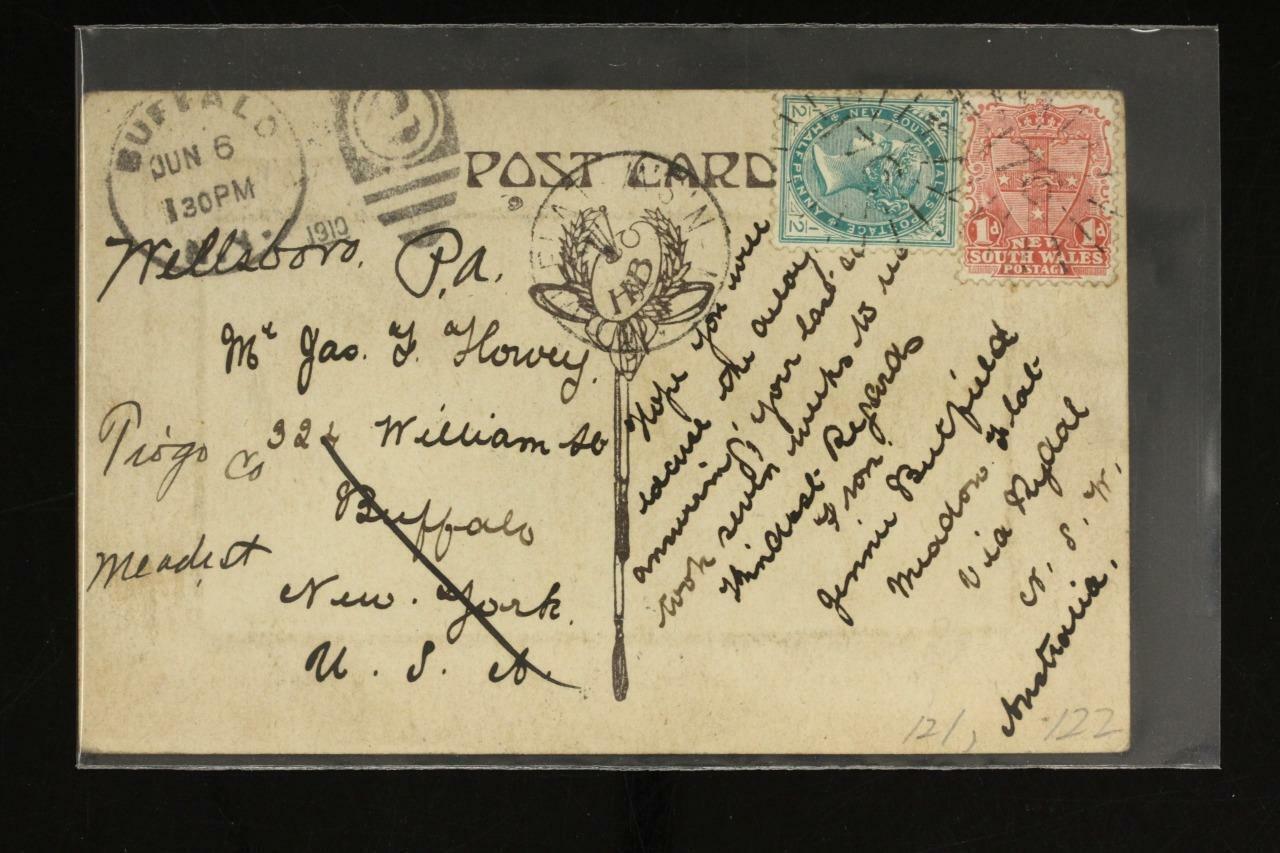 BUFFALO
JUN 6
130PM
1910
POST CARD
HB
NEW SOUTH WALES
POSTAGE
HALFPENNY
1/2
1/2
1d 1d
NEW
SOUTH WALES
POSTAGE
Wellsboro, Pa.
Mr Jas. F. Howey.
32 William St
Tiogo Co
Buffalo
Mead st
New. York.
U. S. A.
Hope you will
excuse the delay
answering, your last
took seven weeks to
Kindest Regards
From
Jennie Butfield
Meadow Flat
Via Rydal
N. S. W.
Australia.
121, 122